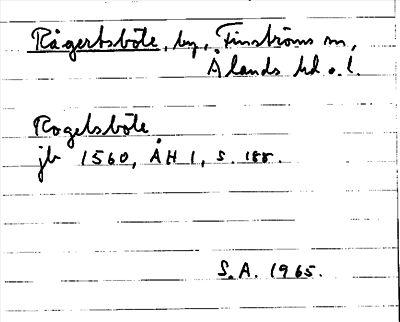 Rågertsböle, by, Finströms sn,
Ålands hd o. l.
Rogelsböle
jb 1560, ÅH 1, s. 188.
S.A. 1965.